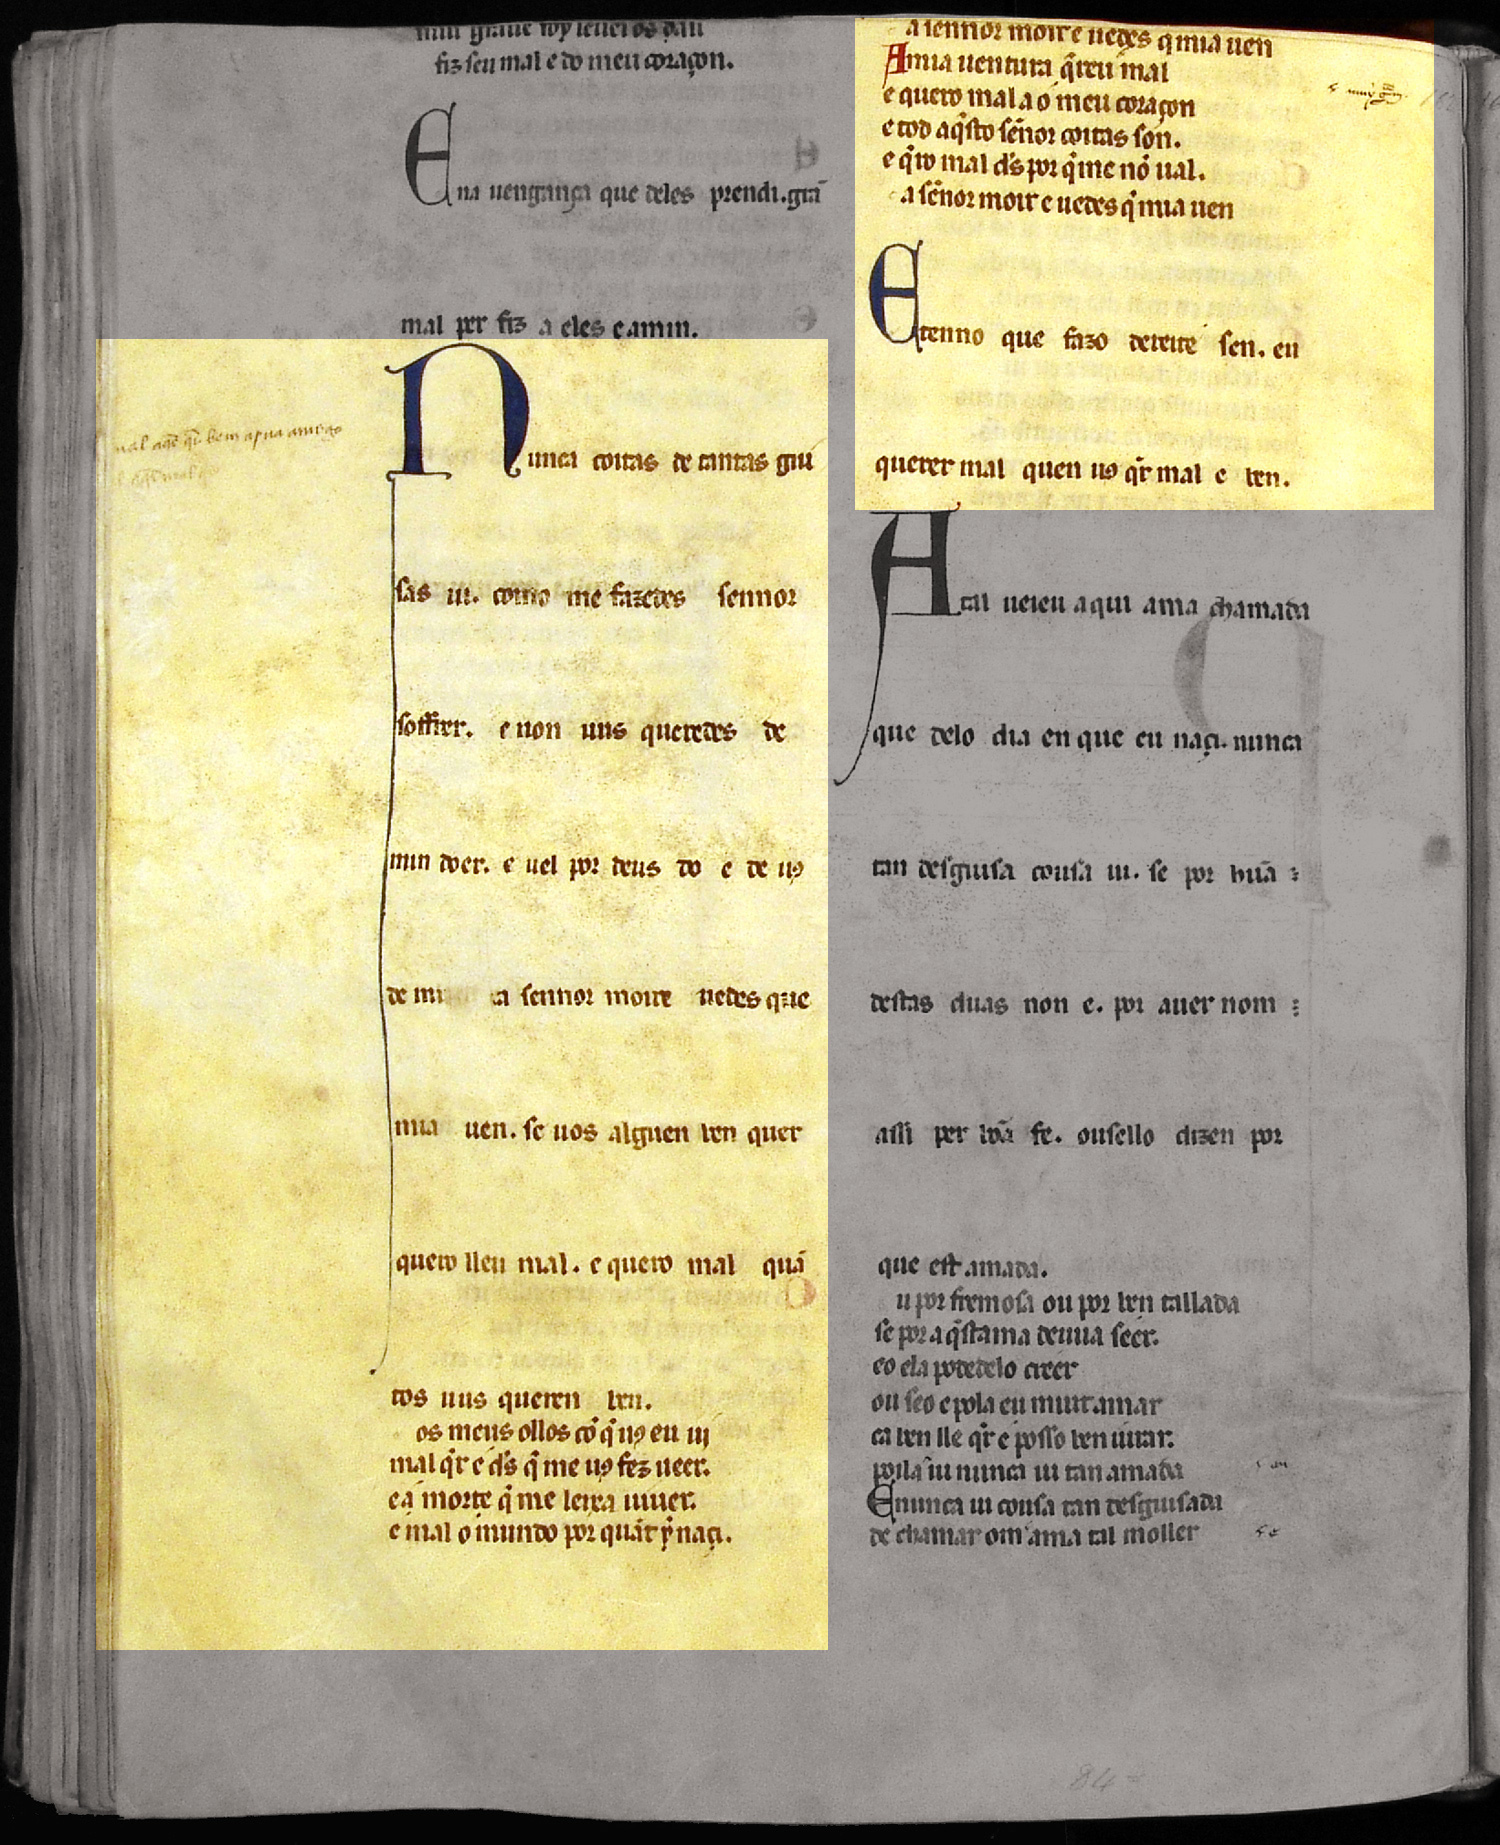 fiz seu mal e do meu coraçon.
Ena uengança que deles prendi. grã
mal per fiz a eles e a min.
mal aqẽ qr bem
Nunca coitas de tantas gui
sas ui. como me fazedes sennor
soffrer. e non uus queredes de
min doer. e uel por deus do e de uꝯ
de mi ca sennor moire uedes que
mia uen. se uos alguen ben quer
quero lleu mal. e quero mal quã
tos uus queren ben.
os meus ollos cõ q̃ uꝯ eu ui
mal q̃r e d's q̃ me uꝯ fez ueer.
e á morte q̃ me leixa uiuer.
e mal o mundo por quãt y naçi.
a sennor moir e uedes q̃ mia uen
A mia uentura q̃reu mal
e quero mal a o meu coraçon
e tod aq̃sto sẽnor coitas son.
e q̃ro mal d's por q̃ me nõ ual.
a sẽnor moir e uedes q̃ mia uen
E tenno que fazo dereite sen. eu
querer mal quen uꝯ q̃r mal e ben.
Atal ueieu aqui ama chamada
que delo dia en que eu naçi. nunca
tan desguisa cousa ui. se por hũa
destas duas non e. por auer nom
assi per bõa fe. ousello dizen por
que est amada.
u por fremosa ou por ben tallada
se por aq̃stama deuua seer.
eo ela podedelo creer
ou seo e pola eu muit amar
ca ben lle q̃r e posso ben iurar.
poila ui nunca ui tan amada
E nunca ui cousa tan desguisada
de chamar om ama tal moller
84